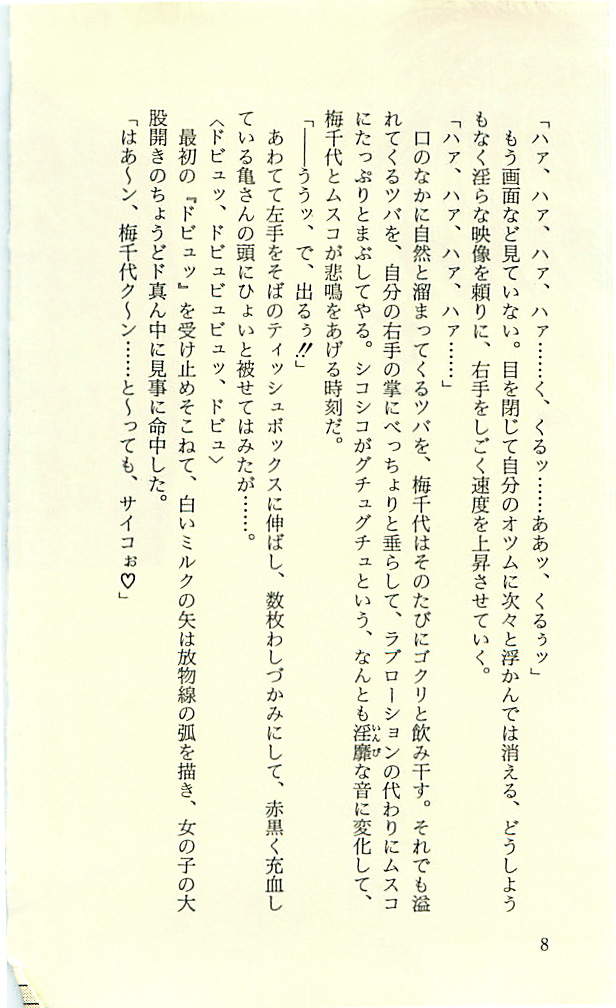 「ハァ、ハァ、ハァ、ハァ……く、くるッ……ああッ、くるぅッ」
もう画面など見ていない。目を閉じて自分のオツムに次々と浮かんでは消える、どうしよう
もなく淫らな映像を頼りに、右手をしごく速度を上昇させていく。
「ハァ、ハァ、ハァ、ハァ……」
口のなかに自然と溜まってくるツバを、梅千代はそのたびにゴクリと飲み干す。それでも溢
れてくるツバを、自分の右手の掌にべっちょりと垂らして、ラブローションの代わりにムスコ
にたっぷりとまぶしてやる。シコシコがグチュグチュという、なんとも淫靡な音に変化して、
梅千代とムスコが悲鳴をあげる時刻だ。
「――ううッ、で、出るぅ!!」
あわてて左手をそばのティッシュボックスに伸ばし、数枚わしづかみにして、赤黒く充血し
ている亀さんの頭にひょいと被せてはみたが……。
〈ドビュッ、ドビュビュビュッ、ドビュ〉
最初の『ドビュッ』を受け止めそこねて、白いミルクの矢は放物線の弧を描き、女の子の大
股開きのちょうどド真ん中に見事に命中した。
「はあ〜ン、梅千代ク〜ン……と〜っても、サイコぉ♡」
8